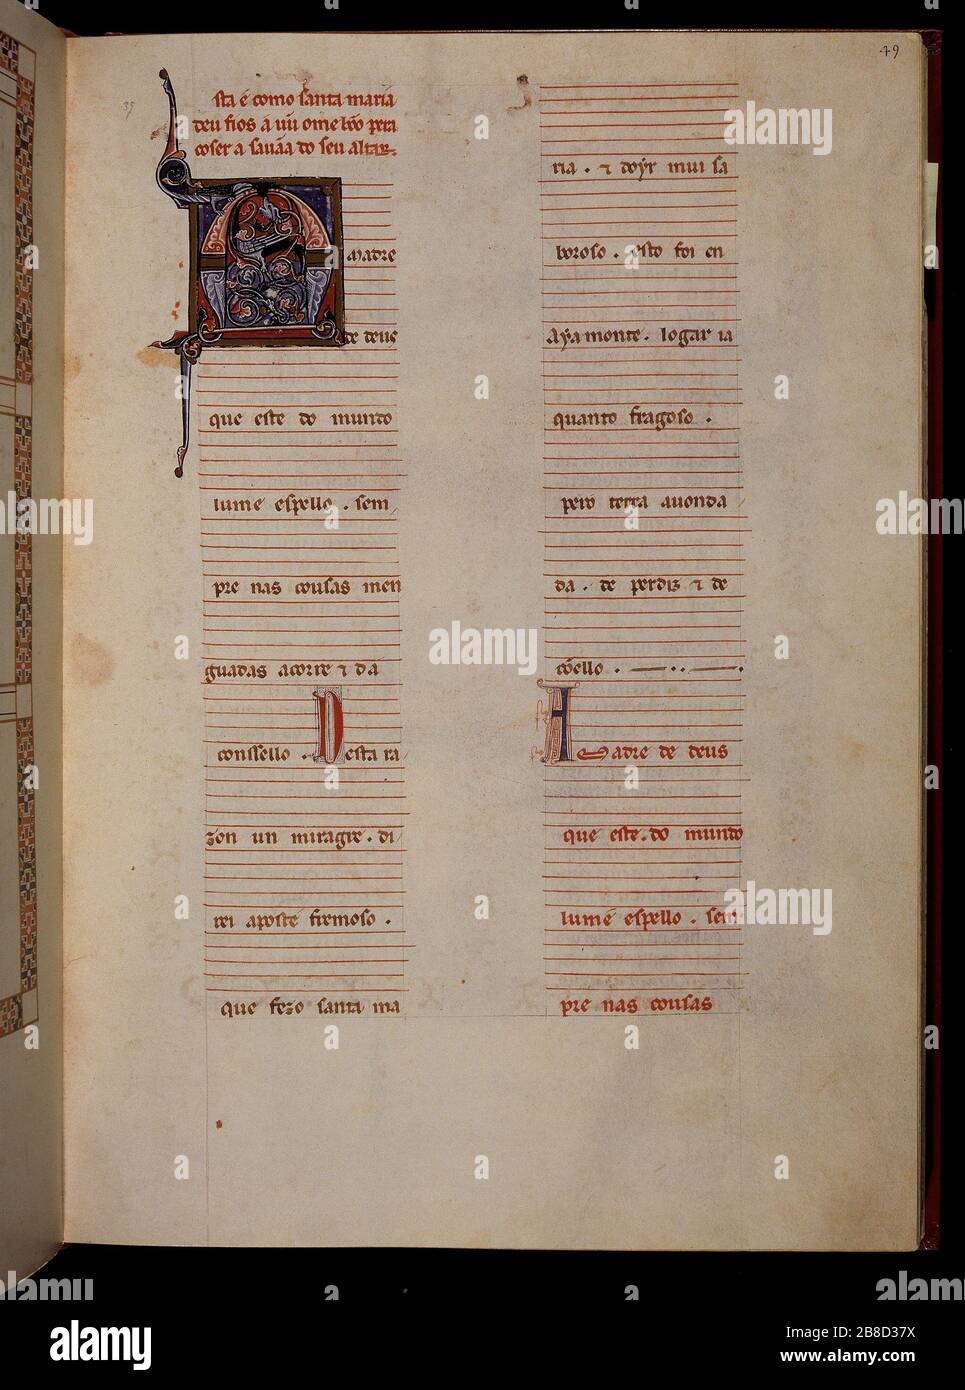 49
39
sta é como santa maria
deu fios a uũ ome bõo pera
coser a sauãa do seu altar.
A Madre
de deus
que este do mundo
lume espello . sem
pre nas cousas men
guadas acorre ⁊ da
conssello . Desta ra
zon un miragre . di
rei aposte fremoso .
que fezo santa ma
ria . ⁊ doyr mui sa
boroso . esto foi en
Ayamonte . logar ia
quanto fragoso .
pero terra auonda
da . de perdiz ⁊ de
cõello .
A Madre de deus
que este . do mundo
lumé espello . sem
pre nas cousas
alamy
a alamy
Image ID: 2B8D37X
www.alamy.com